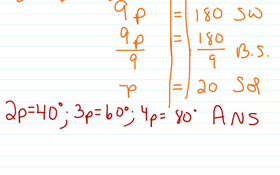 9p = 180 SW
9p/9 = 180/9 B.S.
p = 20 Sol
2p=40°; 3p=60°; 4p= 80° ANS